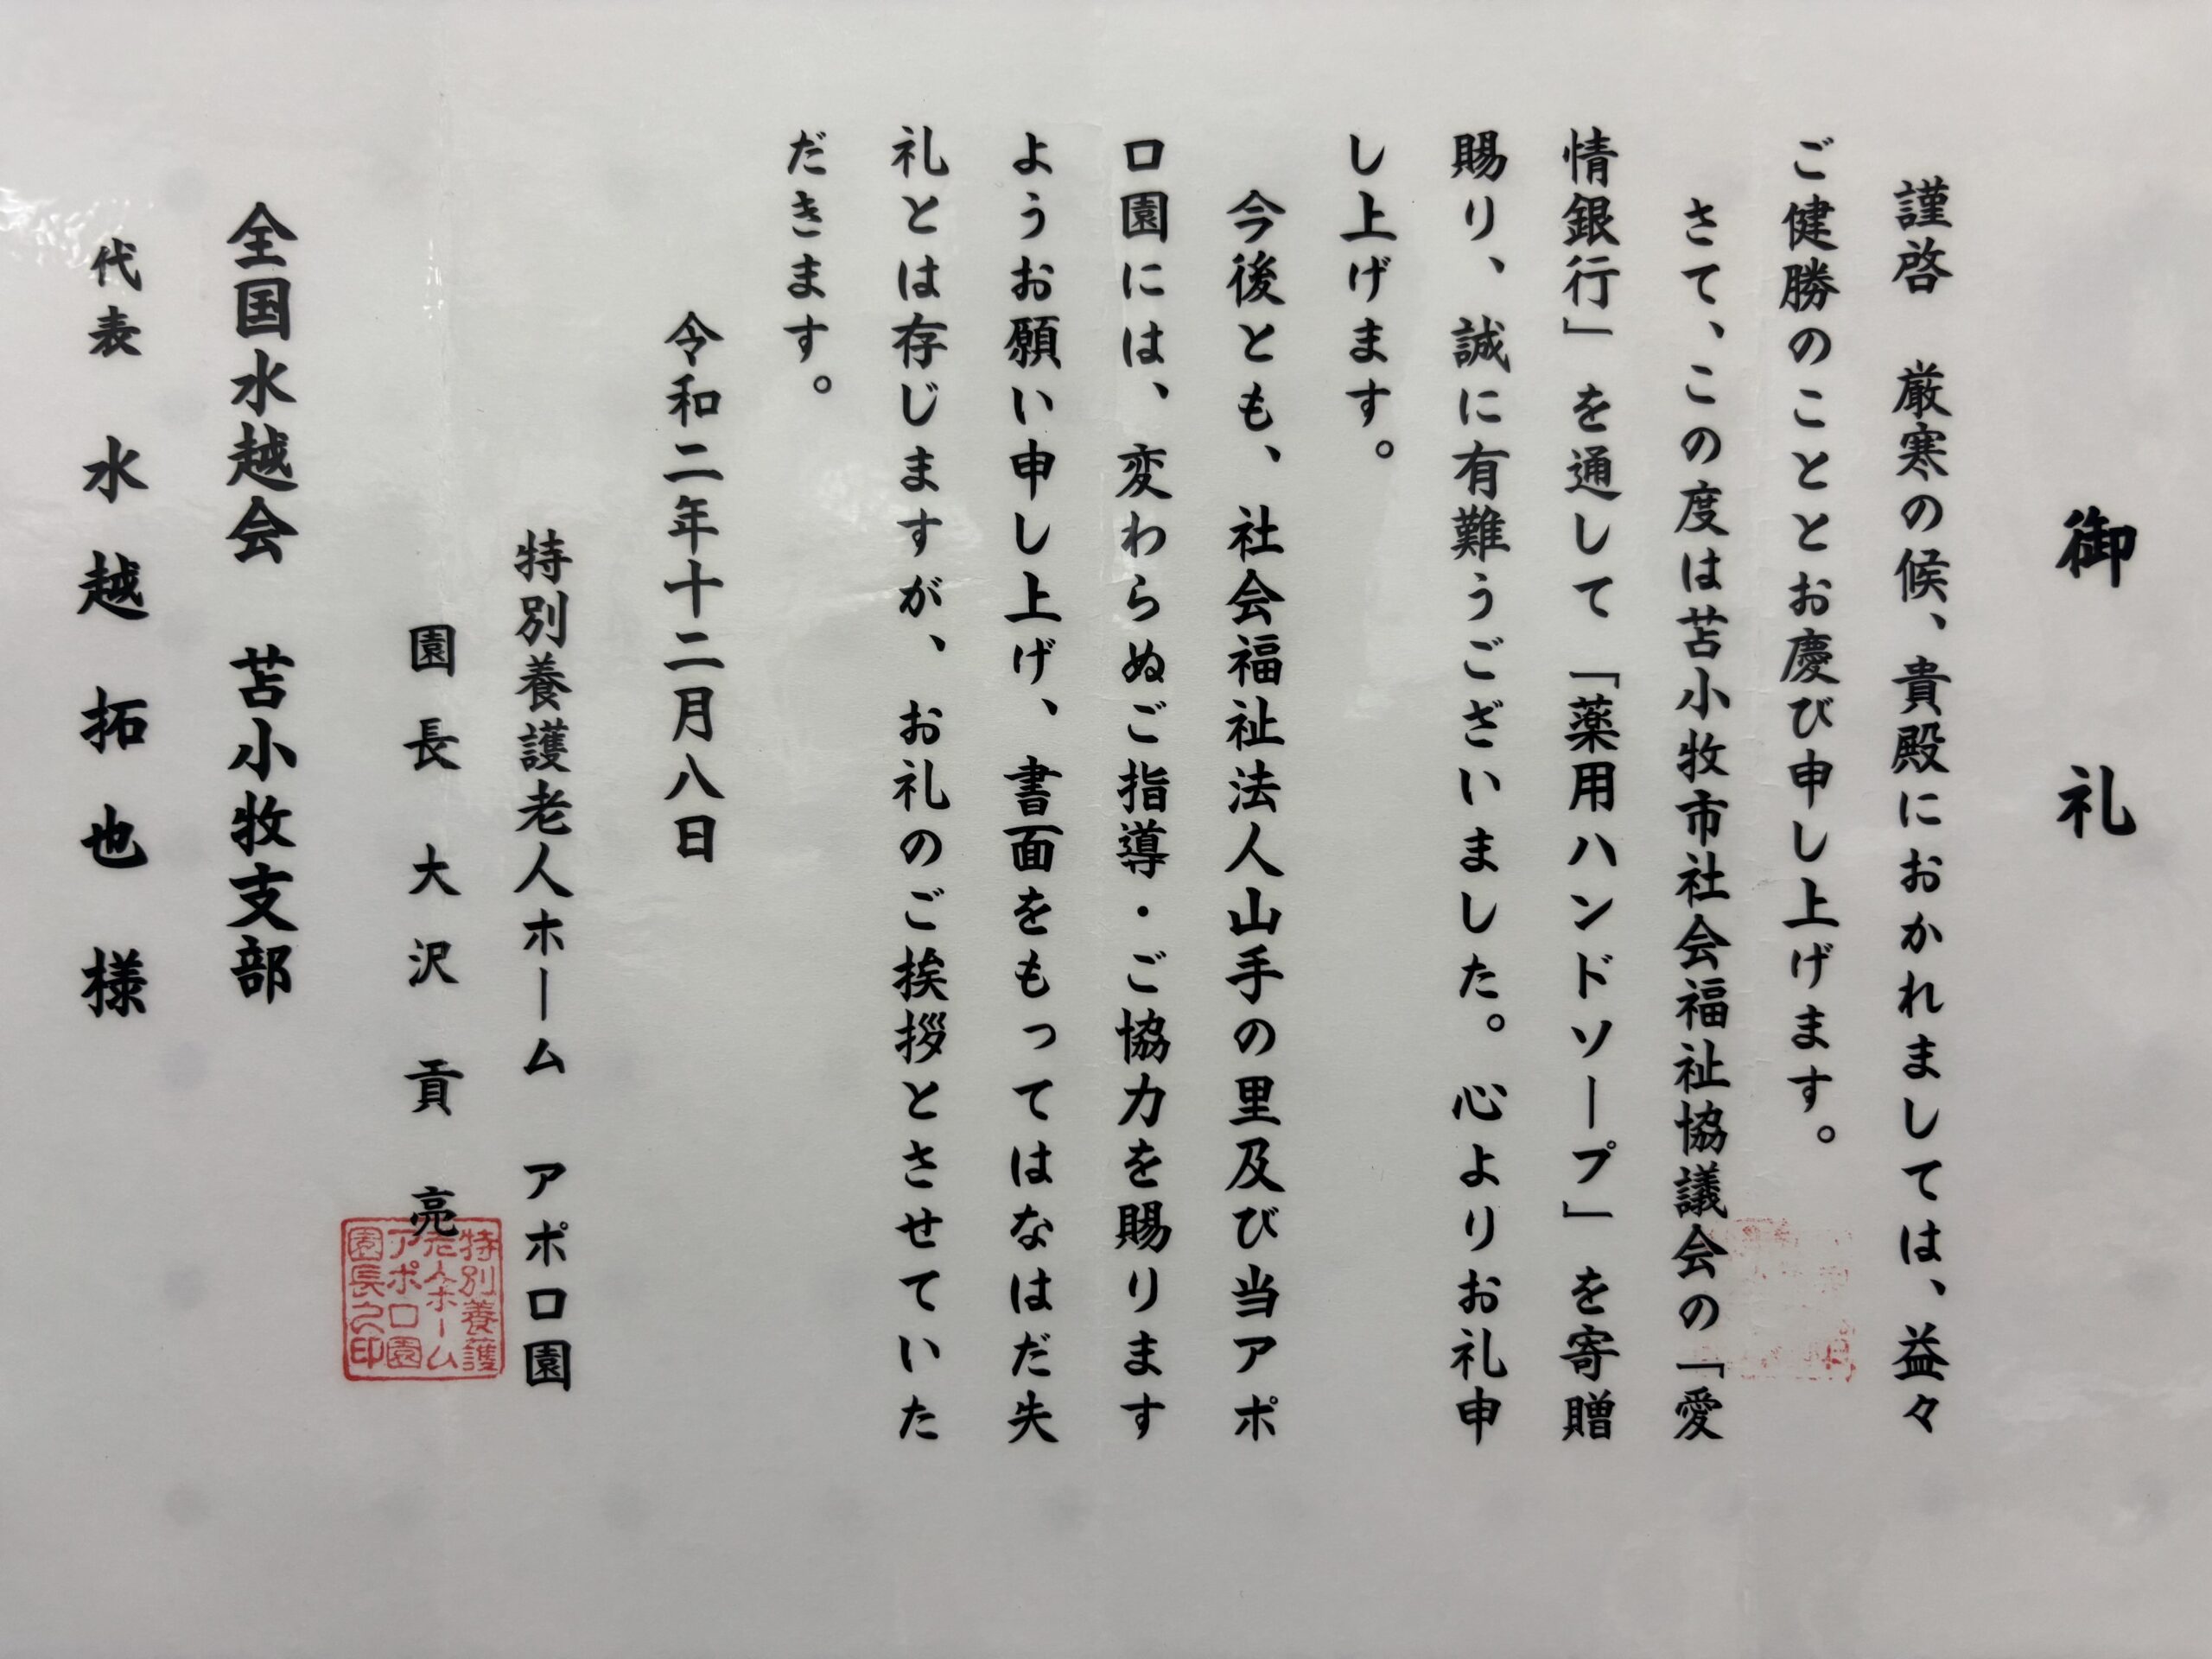 御礼
謹啓　厳寒の候、貴殿におかれましては、益々
ご健勝のこととお慶び申し上げます。
さて、この度は苫小牧市社会福祉協議会の「愛
情銀行」を通して「薬用ハンドソープ」を寄贈
賜り、誠に有難うございました。心よりお礼申
し上げます。
今後とも、社会福祉法人山手の里及び当アポ
ロ園には、変わらぬご指導・ご協力を賜ります
ようお願い申し上げ、書面をもってはなはだ失
礼とは存じますが、お礼のご挨拶とさせていた
だきます。
令和二年十二月八日
特別養護老人ホーム　アポロ園
園長　大沢　貢　亮
特別養護
老人ホーム
アポロ園
園長之印
全国水越会　苫小牧支部
代表　水越　拓也　様